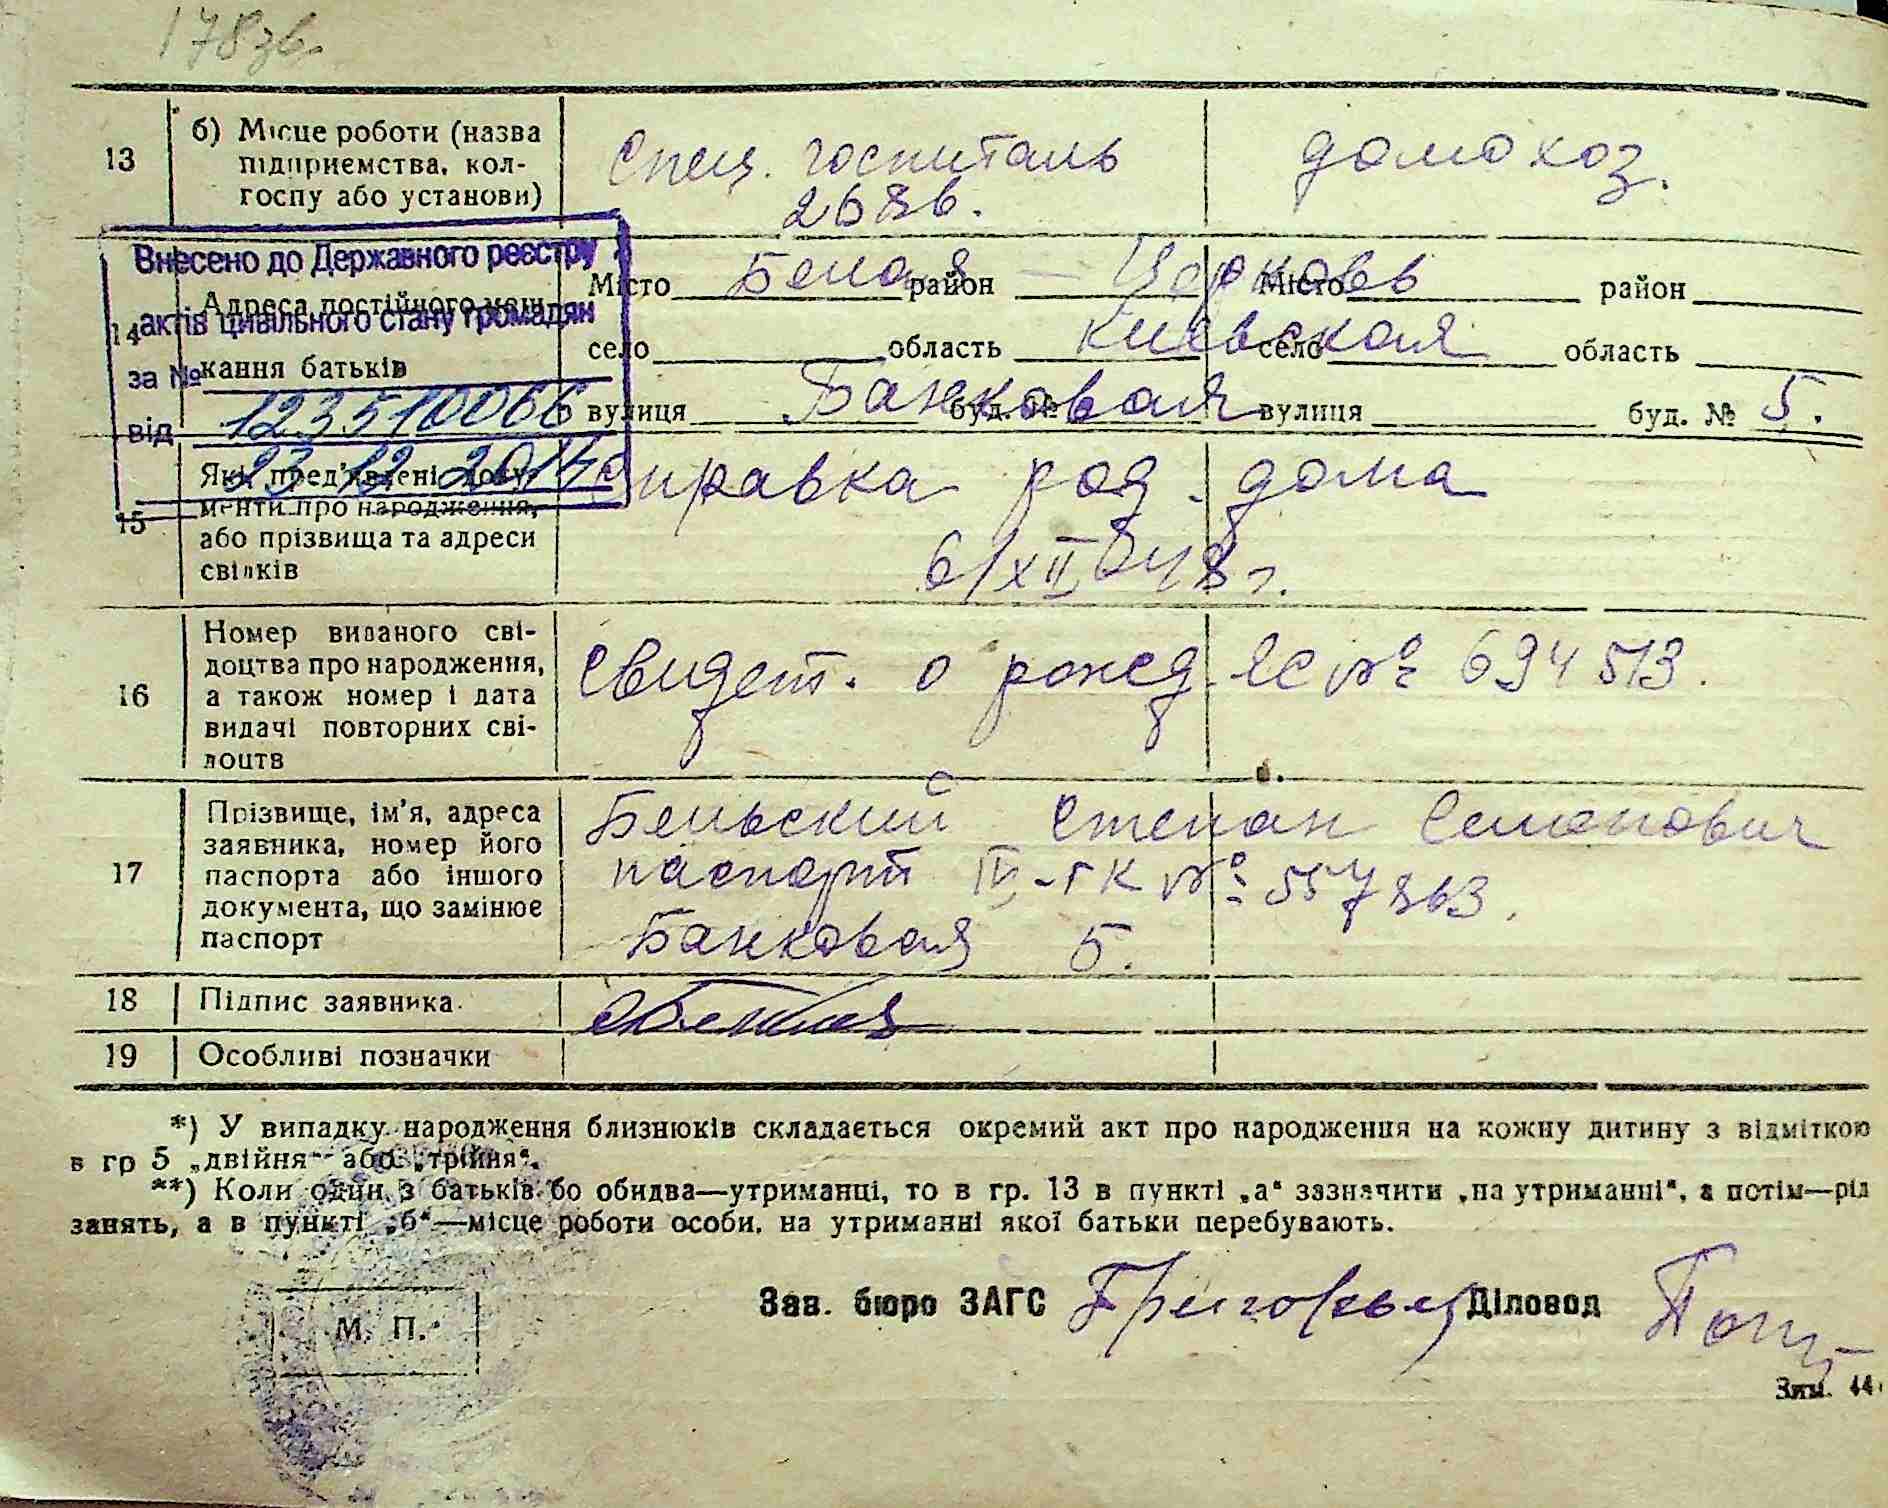 178зв.
13
б) Місце роботи (назва
підприємства, кол-
госпу або установи)
Спец. госпиталь
домохоз.
Внесено до Державного реєстру
актів цивільного стану громадян
за №
123510066
від
23 12 2014
14
Адреса постійного меш-
кання батьків
Місто Белая район — Церковь Місто район
село область Киевская село область
вулиця Банковая буд. № вулиця буд. № 5.
15
Які пред'явлені доку-
менти про народження,
або прізвища та адреси
свідків
Справка род. дома
6/XII 948 г.
16
Номер виданого сві-
доцтва про народження,
а також номер і дата
видачі повторних сві-
доцтв
Свидет. о рожд. ЯС № 694513.
17
Прізвище, ім'я, адреса
заявника, номер його
паспорта або іншого
документа, що замінює
паспорт
Бельский Степан Семенович
паспорт IV-ГК № 557863.
Банковая 5.
18
Підпис заявника
19
Особливі позначки
*) У випадку народження близнюків складається окремий акт про народження на кожну дитину з відміткою
в гр 5 „двійня“ або „трійня“.
**) Коли один з батьків бо обидва—утриманці, то в гр. 13 в пункті „а“ зазначити „на утриманні“, а потім—рід
занять, а в пункті „б“—місце роботи особи, на утриманні якої батьки перебувають.
М. П.
Зав. бюро ЗАГС Діловод
Зам. 44